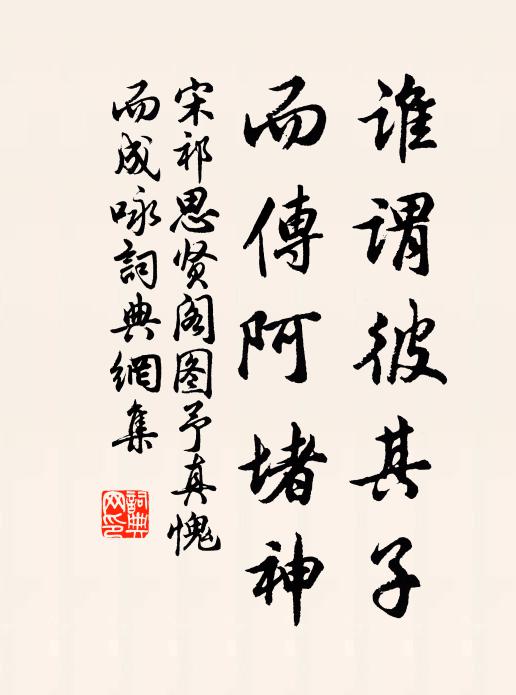 谁謂彼其子
而傳阿堵神
宋祁思贤阁图予真愧
而成咏詞典網集
詞典网印